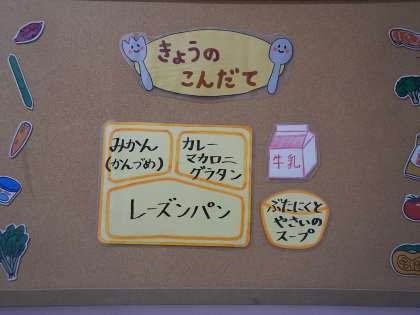 きょうの
こんだて
みかん
(かんづめ)
カレー
マカロニ
グラタン
牛乳
レーズンパン
ぶたにくと
やさいの
スープ